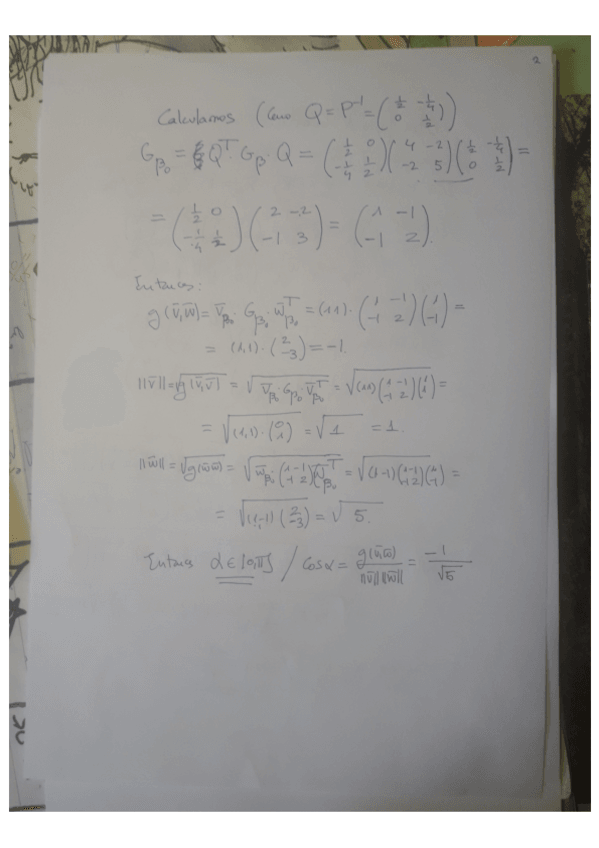 2
Calculamos (Como Q = P⁻¹ = (1/2 -1/4; 0 1/2))
G_β₀ = Qᵀ · G_β · Q = (1/2 0; -1/4 1/2)(4 -2; -2 5)(1/2 -1/4; 0 1/2) =
= (1/2 0; -1/4 1/2)(2 -2; -1 3) = (1 -1; -1 2).
Entonces:
g(v̄,w̄) = v̄_β₀ · G_β₀ · w̄ᵀ_β₀ = (1 1) · (1 -1; -1 2)(1; -1) =
= (1,1) · (2; -3) = -1.
||v̄|| = √g(v̄,v̄) = √(v̄_β₀ · G_β₀ · v̄ᵀ_β₀) = √((1 1)(1 -1; -1 2)(1; 1)) =
= √((1,1) · (0; 1)) = √1 = 1.
||w̄|| = √g(w̄,w̄) = √(w̄_β₀ · (1 -1; -1 2) w̄ᵀ_β₀) = √((1 -1)(1 -1; -1 2)(1; -1)) =
= √((1,-1)(2; -3)) = √5.
Entonces α ∈ [0,π] / cos α = g(v̄,w̄)/(||v̄|| ||w̄||) = -1/√5